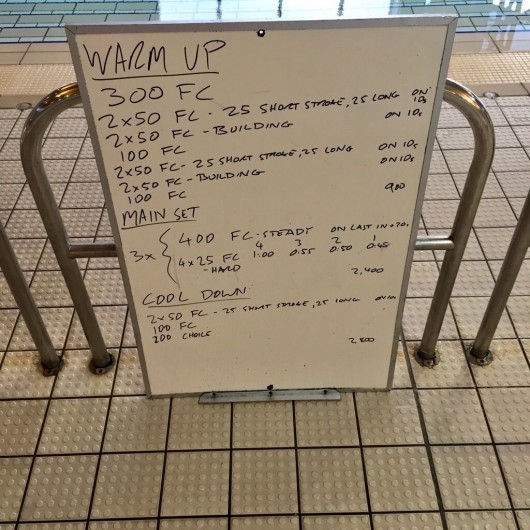 WARM UP
300 FC
2x50 FC - 25 SHORT STROKE, 25 LONG ON 10s
2x50 FC - BUILDING ON 10s
100 FC
2x50 FC - 25 SHORT STROKE, 25 LONG ON 10s
2x50 FC - BUILDING ON 10s
100 FC 900
MAIN SET
3x { 400 FC - STEADY ON LAST IN +70s
4 3 2 1
4x25 FC 1:00 0:55 0:50 0:45
- HARD
2,400
COOL DOWN
2x50 FC - 25 SHORT STROKE, 25 LONG ON 10s
100 FC
200 CHOICE 2,800